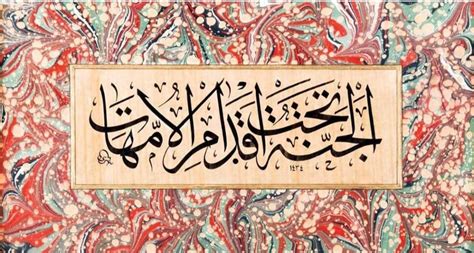 الجنّة تحت أقدام الأمّهات
١٤٣٤